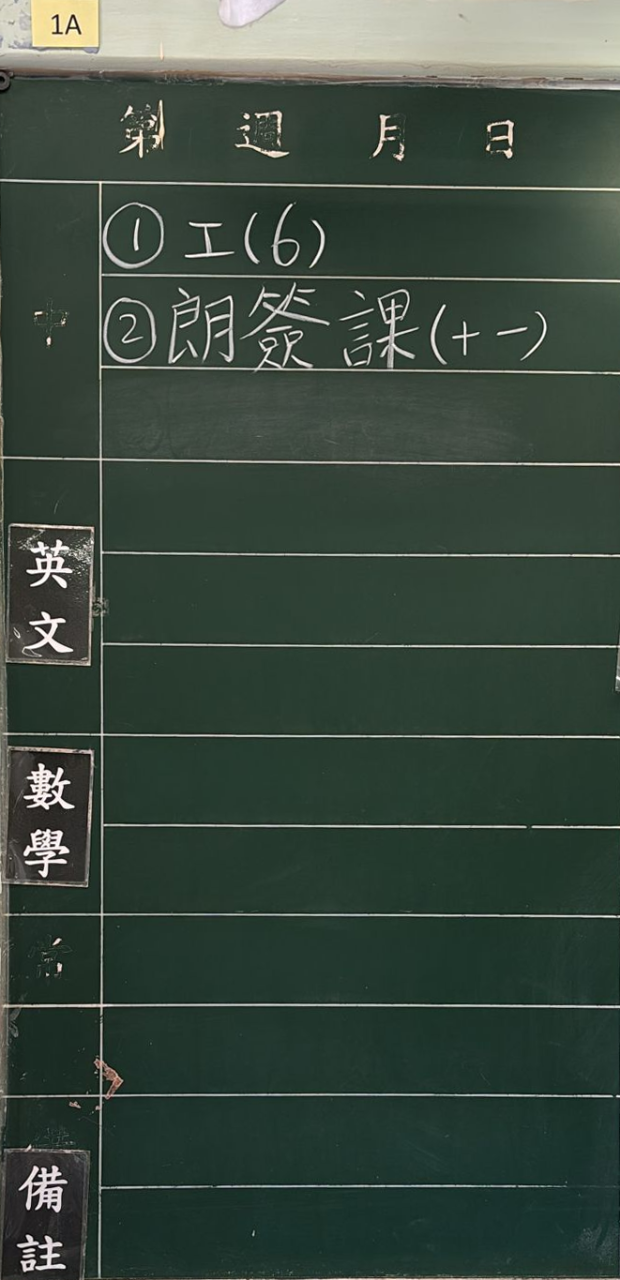 1A
第 週 月 日
中
①工(6)
②朗簽課(十一)
英文
數學
常
備註